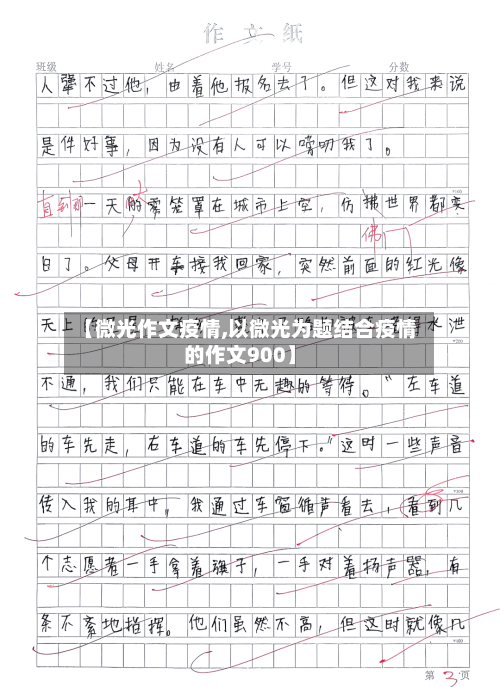 作 文 纸
班级 姓名 学号 分数
人辈不过他，由着他报名去了。但这对我来说
是件好事，因为没有人可以唠叨我了。
直到那一天的大雾笼罩在城市上空，仿拂世界都变
佛
日了。父母开车接我回家，突然前面的红光像
天上
水泄
【微光作文疫情,以微光为题结合疫情
的作文900】
不通，我们只能在车中无趣的等待。“左车道
的车先走，右车道的车先停下。”这时一些声音
传入我的耳中，我通过车窗循声看去，看到几
个志愿者一手拿着旗子，一手对着扬声器，有
条不紊地指挥。他们虽然不高，但这时就像几
第 3 页